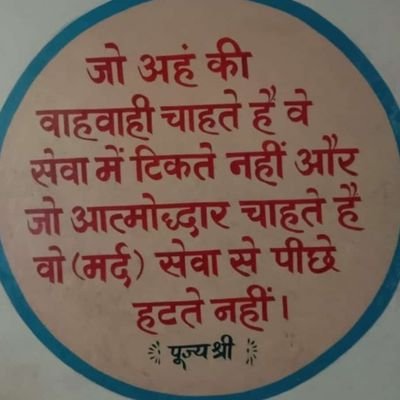 जो अहं की
वाहवाही चाहते हैं वे
सेवा में टिकते नहीं और
जो आत्मोद्धार चाहते हैं
वो (मर्द) सेवा से पीछे
हटते नहीं।
पूज्य श्री